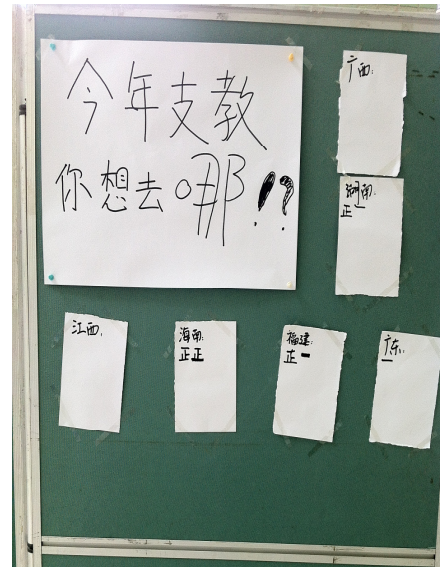 今年支教
你想去哪!?
广西:
湖南:
正一
江西:
海南:
正正
福建:
正一
广东:
一